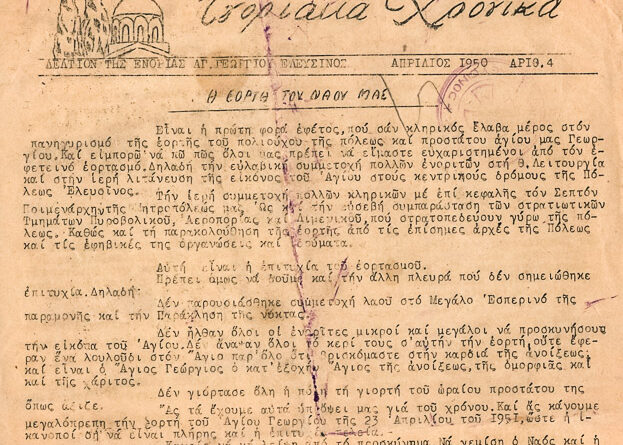 Ἐνοριακά Χρονικά
ΔΕΛΤΙΟΝ ΤΗΣ ΕΝΟΡΙΑΣ ΑΓ.ΓΕΩΡΓΙΟΥ ΕΛΕΥΣΙΝΟΣ ΑΠΡΙΛΙΟΣ 1950 ΑΡΙΘ.4
Η ΕΟΡΤΗ ΤΟΥ ΝΑΟΥ ΜΑΣ
Εἶναι ἡ πρώτη φορά ἐφέτος,πού σάν κληρικός ἔλαβα μέρος στόν
πανηγυρισμό τῆς ἑορτῆς τοῦ πολιούχου τῆς πόλεως καί προστάτου ἁγίου μας Γεωρ-
γίου.Καί εἰμπορῶ νά πῶ πῶς ὅλοι μας πρέπει νά εἴμαστε εὐχαριστημένοι ἀπό τόν ἐ-
φετεινό ἑορτασμό.Δηλαδή τήν εὐλαβική συμμετοχή πολλῶν ἐνοριτῶν στή θ.Λειτουργία
καί στήν ἱερή λιτάνευση τῆς εἰκόνος τοῦ Ἁγίου στούς κεντρικούς δρόμους τῆς Πό-
λεως Ἐλευσῖνος.
Τήν ἱερή συμμετοχή πολλῶν κληρικῶν μέ ἐπί κεφαλῆς τόν Σεπτόν
Ποιμενάρχην τῆς Μητροπόλεώς μας, ὡς καί τήν εὐσεβῆ συμπαράσταση τῶν στρατιωτικῶν
Τμημάτων Πυροβολικοῦ,Ἀεροπορίας καί Λιμενικοῦ,πού στρατοπεδεύουν γύρω τῆς πό-
λεως. Καθώς καί τή παρακολούθηση τῆς ἑορτῆς ἀπό τίς ἐπίσημες ἀρχές τῆς Πόλεως
καί τίς ἐφηβικές της ὀργανώσεις καί ἱδρύματα.
Αὐτή εἶναι ἡ ἐπιτυχία τοῦ ἑορτασμοῦ.
Πρέπει ὅμως νά δοῦμε καί τήν ἄλλη πλευρά πού δέν σημειώθηκε
ἐπιτυχία.Δηλαδή:
Δέν παρουσιάσθηκε συμμετοχή λαοῦ στό Μεγάλο Ἑσπερινό τῆς
παραμονῆς καί τήν Παράκληση τῆς νύκτας.
Δέν ἦλθαν ὅλοι οἱ ἐνορῖτες μικροί καί μεγάλοι νά προσκυνήσουν
τήν εἰκόνα τοῦ Ἁγίου.Δέν ἄναψαν ὅλοι τό κερί τους σ'αὐτήν τήν ἑορτή,οὔτε ἔφε-
ραν ἕνα λουλούδι στόν Ἅγιο παρ'ὅλο ὅτι βρισκόμαστε στήν καρδιά τῆς ἀνοίξεως,
καί εἶναι ὁ Ἅγιος Γεώργιος ὁ κατ'ἐξοχήν Ἅγιος τῆς ἀνοίξεως,τῆς ὀμορφιᾶς καί
καί τῆς χάριτος.
Δέν γιόρτασε ὅλη ἡ πόλη τή γιορτή τοῦ ὡραίου προστάτου της
ὅπως ἄξιζε.
Ἄς τά ἔχουμε αὐτά ὑπ'ὄψει μας γιά τοῦ χρόνου.Καί ἄς κάνουμε
μεγαλόπρεπη τήν ἑορτή τοῦ Ἁγίου Γεωργίου τῆς 23 Ἀπριλίου τοῦ 1951,ὥστε ἡ ἱ-
κανοποί σή νά εἶναι πλήρης καί ἡ ἐπιτυχία τελεία.
ἀπό τό προσκύνημα.Νά γεμίση ὁ Ναός καί ἡ